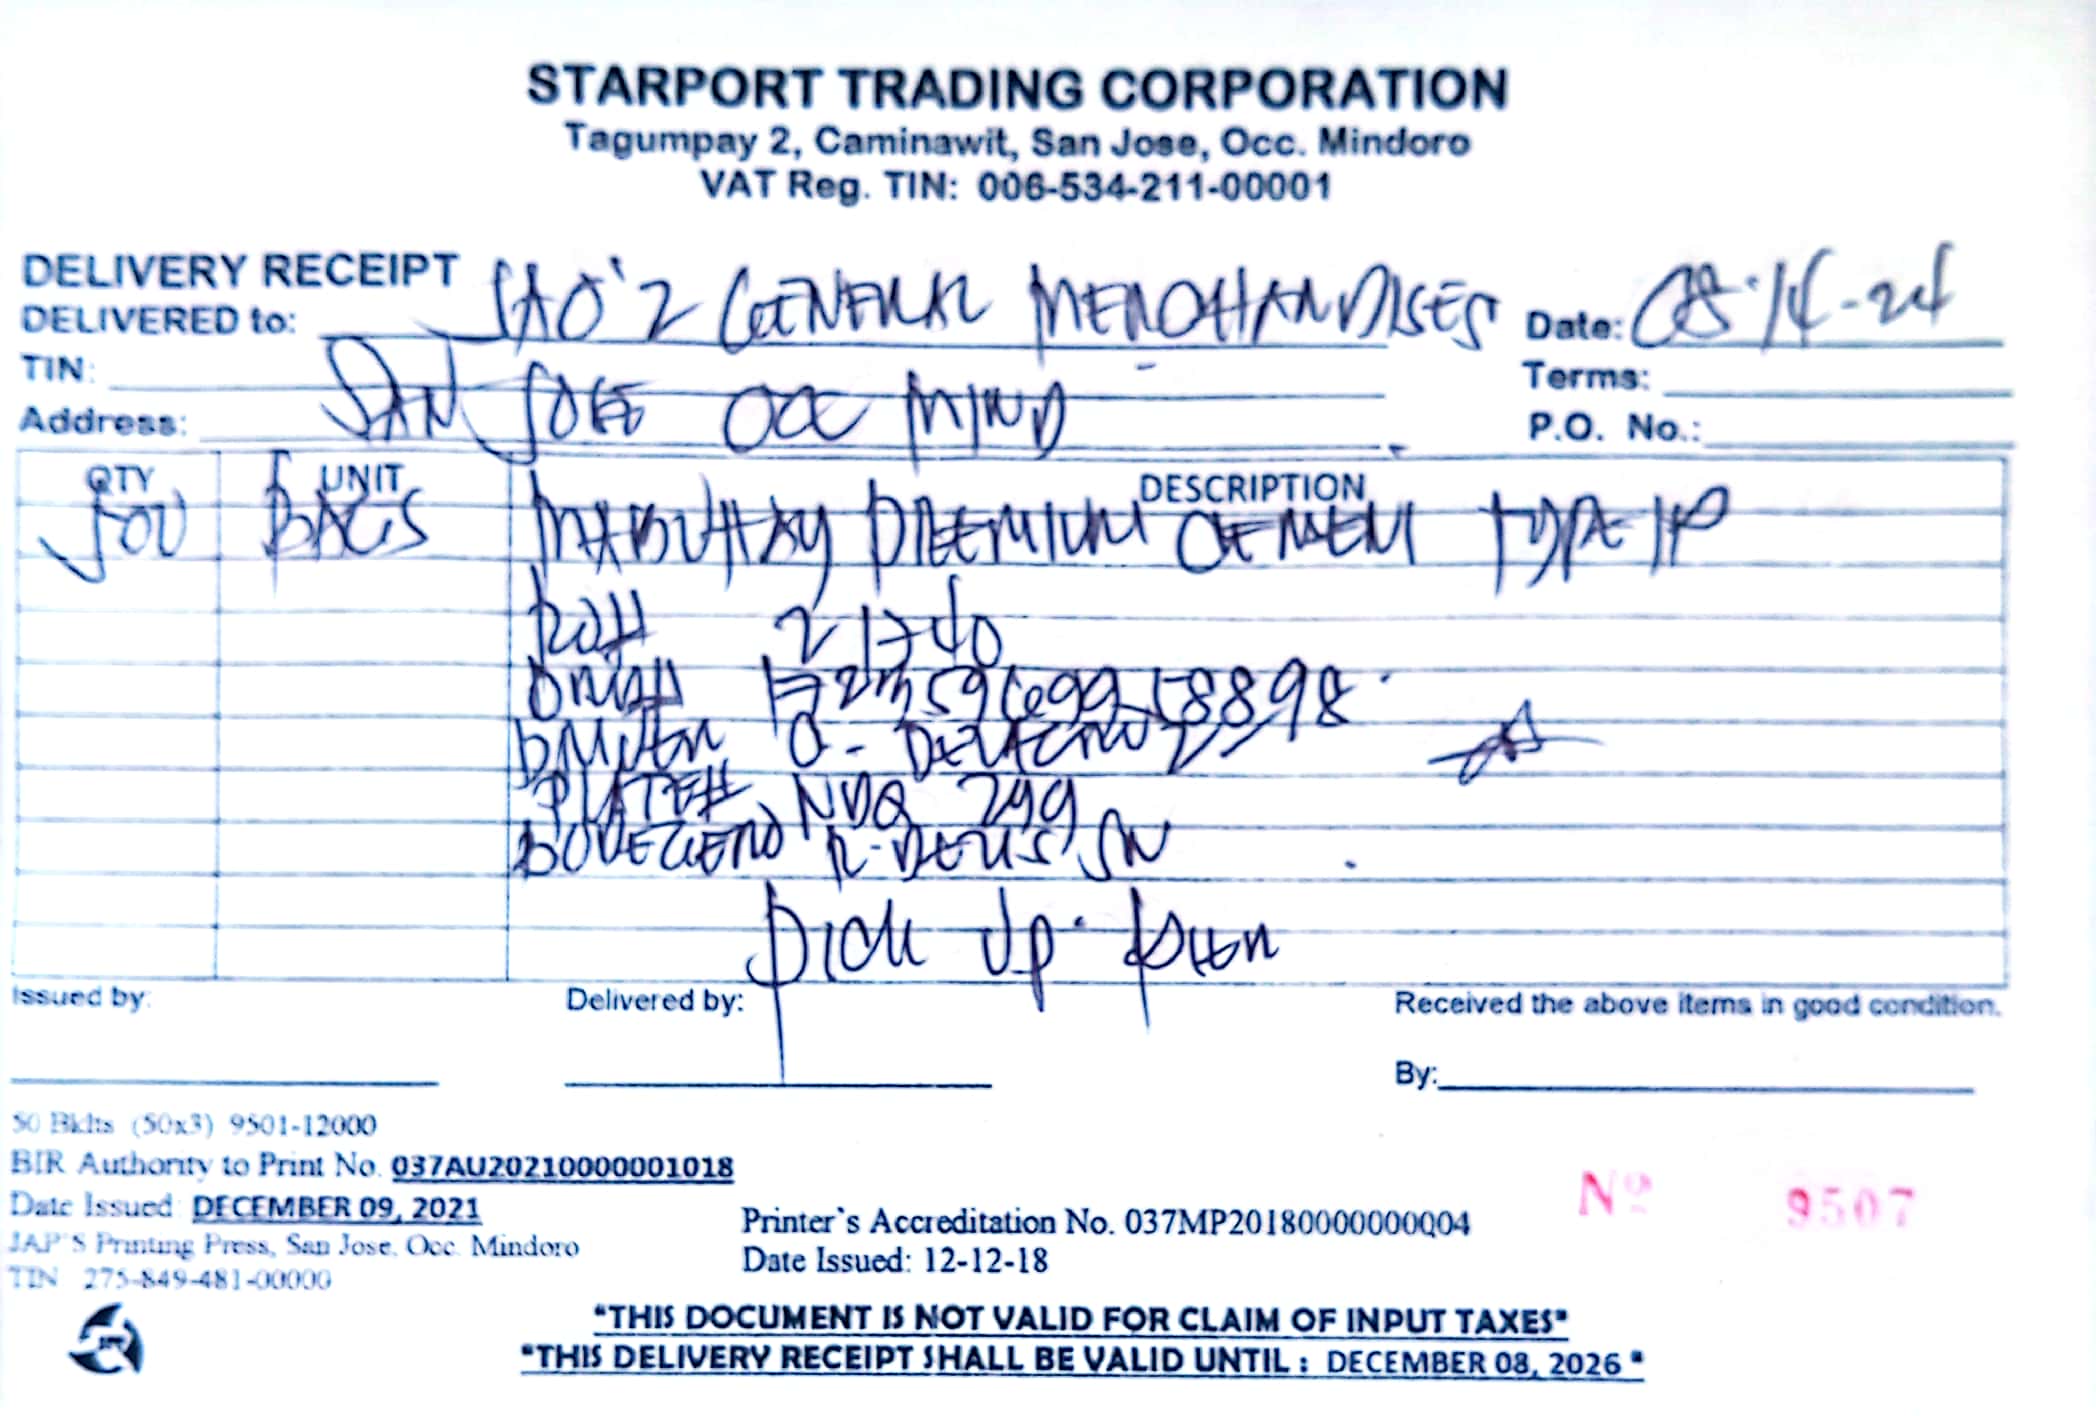 STARPORT TRADING CORPORATION
Tagumpay 2, Caminawit, San Jose, Occ. Mindoro
VAT Reg. TIN: 006-534-211-00001
DELIVERY RECEIPT
DELIVERED to: GENERAL MERCHANDISES Date: 05-14-24
TIN: Terms:
Address: SAN JOSE OCC MIND P.O. No.:
QTY UNIT DESCRIPTION
500 BAGS MABUHAY PREMIUM CEMENT TYPE 1P
21740
DRIVER
PLATE# NDQ 799
PICK UP
Issued by: Delivered by: Received the above items in good condition.
By:
50 Bklts (50x3) 9501-12000
BIR Authority to Print No. 037AU20210000001018
Date Issued: DECEMBER 09, 2021
JAP'S Printing Press, San Jose, Occ. Mindoro
TIN 275-849-481-00000
Printer's Accreditation No. 037MP20180000000004
Date Issued: 12-12-18
Nº 9507
"THIS DOCUMENT IS NOT VALID FOR CLAIM OF INPUT TAXES"
"THIS DELIVERY RECEIPT SHALL BE VALID UNTIL : DECEMBER 08, 2026 "